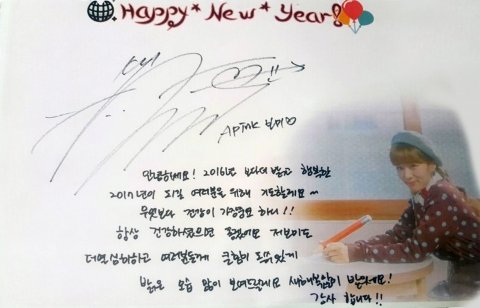 Happy* New* Year!
APink 보미♡
안녕하세요! 2016년 보다더 밝고 행복한
2017년이 되길 여러분을 위해 기도할게요~
무엇보다 건강이 가장중요 하니!!
항상 건강하셨으면 좋겠어요 저보미도
더열심히하고 여러분들께 큰힘이 될수있게
밝은 모습 많이 보여드릴게요 새해복많이 받으세요!
감사 합니다!!